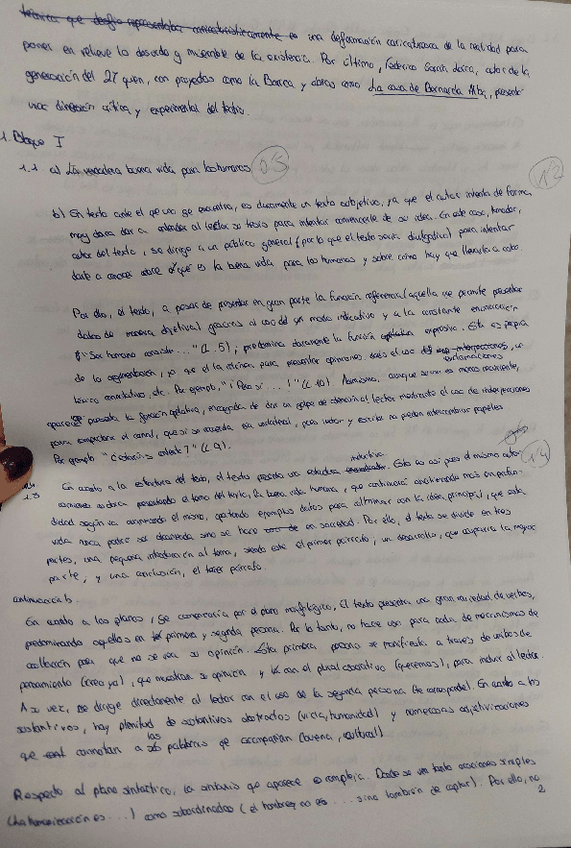 es una deformación caricaturesca de la realidad para
poner en relieve lo absurdo y miserable de la existencia. Por último, Federico García Lorca, autor de la
generación del 27 quien, con proyectos como La Barraca y obras como La casa de Bernarda Alba, presentó
una dimensión crítica y experimental del teatro.
1. Bloque I
1.1 a) La verdadera buena vida para los humanos 0.5
b) En texto ante el que uno se encuentra, es claramente un texto subjetivo, ya que el autor intenta de forma
muy clara dar a entender al lector su tesis para intentar convencerle de su idea. En este caso,
autor del texto, se dirige a un público general (por lo que el texto sería divulgativo) para intentar
darle a conocer sobre qué es la buena vida para los humanos y sobre como hay que llevarla a cabo.
Por ello, el texto, a pesar de presentar en gran parte la función referencial (aquella que permite presentar
datos de manera objetiva) gracias al uso del modo indicativo y a la constante enunciación
"Ser humano consiste..." (L. 5); predomina claramente la función expresiva. Esta es propia
de la argumentación, ya que el la utiliza para presentar opiniones bajo el uso de exclamaciones, un
léxico connotativo, etc. Por ejemplo, "¡Pero si ...!" (L. 10). Asimismo, aunque sea en menos recurrente,
aparece presente la función apelativa, encargada de dar un golpe de atención al lector mediante el uso de interpelaciones
para comprobar el canal, que si se recuerda es unilateral, pues lector y escritor no pueden intercambiar papeles
Por ejemplo "¿estamos?" (L 9).
1.3 En cuanto a la estructura del texto, el texto presenta una estructura inductiva. Esto es así pues el mismo autor
comienza presentando el tema del texto, la buena vida humana, y que continuará ahondando más en profun-
didad según va avanzando el mismo, aportando ejemplos para culminar con la idea principal, que esta
vida nunca podrá ser alcanzada sino se hace en sociedad. Por ello, el texto se divide en tres
partes, una pequeña introducción al tema, siendo este el primer párrafo; un desarrollo, que ocuparía la mayor
parte, y una conclusión, el tercer párrafo.
continuación b
En cuanto a los planos, se comenzaría por el plano morfológico, El texto presenta una gran variedad de verbos,
predominando aquellos en primera y segunda persona. Por lo tanto, no hace uso para nada de mecanismos de
ocultación para que no se vea su opinión. Esta primera persona se manifiesta a través de verbos de
pensamiento (creo yo), que muestran su opinión y con el plural asociativo (queremos), para incluir al lector.
A su vez, se dirige directamente al lector con el uso de la segunda persona (te corresponde). En cuanto a los
sustantivos, hay plenitud de sustantivos abstractos (vida, humanidad) y numerosas adjetivaciones
que connotan a las palabras que acompañan (buena, cultural)
Respecto al plano sintáctico, la sintaxis que aparece es compleja. Donde se ven tanto oraciones simples
(La humanización es ...) como subordinadas (el hombre no es ... sino también de captar). Por ello, no
2